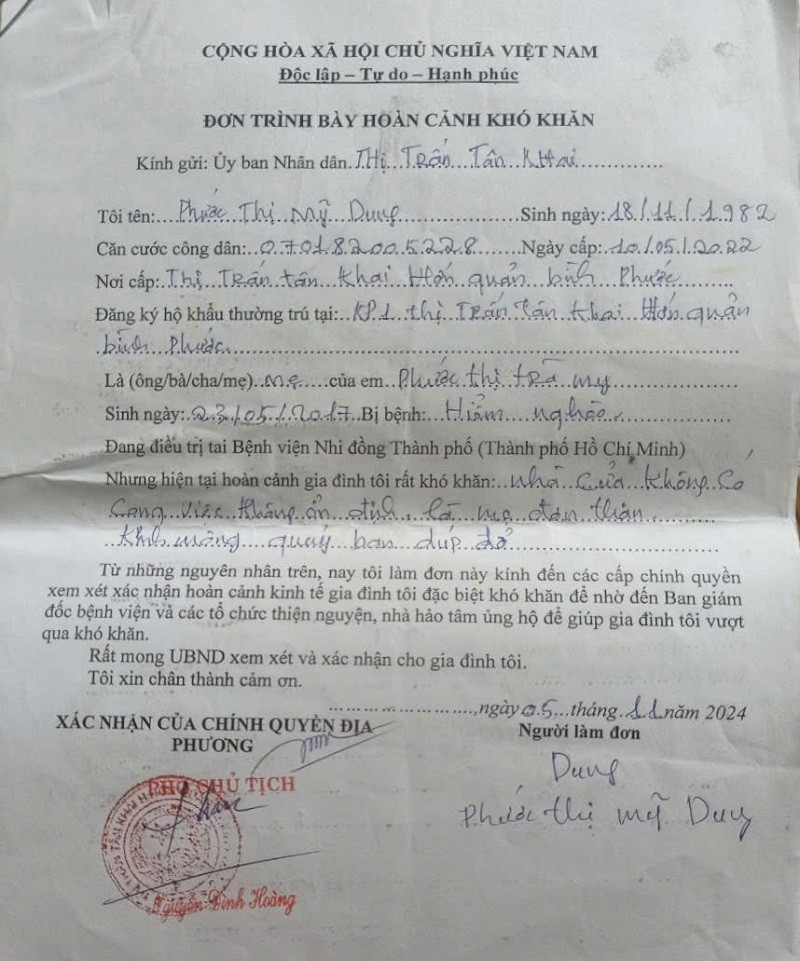 CỘNG HÒA XÃ HỘI CHỦ NGHĨA VIỆT NAM
Độc lập – Tự do – Hạnh phúc
ĐƠN TRÌNH BÀY HOÀN CẢNH KHÓ KHĂN
Kính gửi: Ủy ban Nhân dân Thị Trấn Tân Khai
Tôi tên: Phước Thị Mỹ Dung Sinh ngày: 18/11/1982
Căn cước công dân: 070182005228 Ngày cấp: 10/05/2022
Nơi cấp: Thị Trấn tân Khai Hớn quản bình Phước
Đăng ký hộ khẩu thường trú tại: KP1 thị Trấn Tân Khai Hớn quản
bình Phước
Là (ông/bà/cha/mẹ) mẹ của em Phước thị trà my
Sinh ngày: 23/05/2017 Bị bệnh: Hiểm nghèo
Đang điều trị tai Bệnh viện Nhi đồng Thành phố (Thành phố Hồ Chí Minh)
Nhưng hiện tại hoàn cảnh gia đình tôi rất khó khăn: nhà Cửa Không Co
Cong Việc Không ổn định, là mẹ đơn thân
Kính mong quuý ban dúp đở
Từ những nguyên nhân trên, nay tôi làm đơn này kính đến các cấp chính quyền
xem xét xác nhận hoàn cảnh kinh tế gia đình tôi đặc biệt khó khăn để nhờ đến Ban giám
đốc bệnh viện và các tổ chức thiện nguyện, nhà hảo tâm ủng hộ để giúp gia đình tôi vượt
qua khó khăn.
Rất mong UBND xem xét và xác nhận cho gia đình tôi.
Tôi xin chân thành cảm ơn.
, ngày 05 tháng 11 năm 2024
XÁC NHẬN CỦA CHÍNH QUYỀN ĐỊA
PHƯƠNG
Người làm đơn
PHÓ CHỦ TỊCH
Dung
Phước thị mỹ Dung
Nguyễn Đình Hoàng